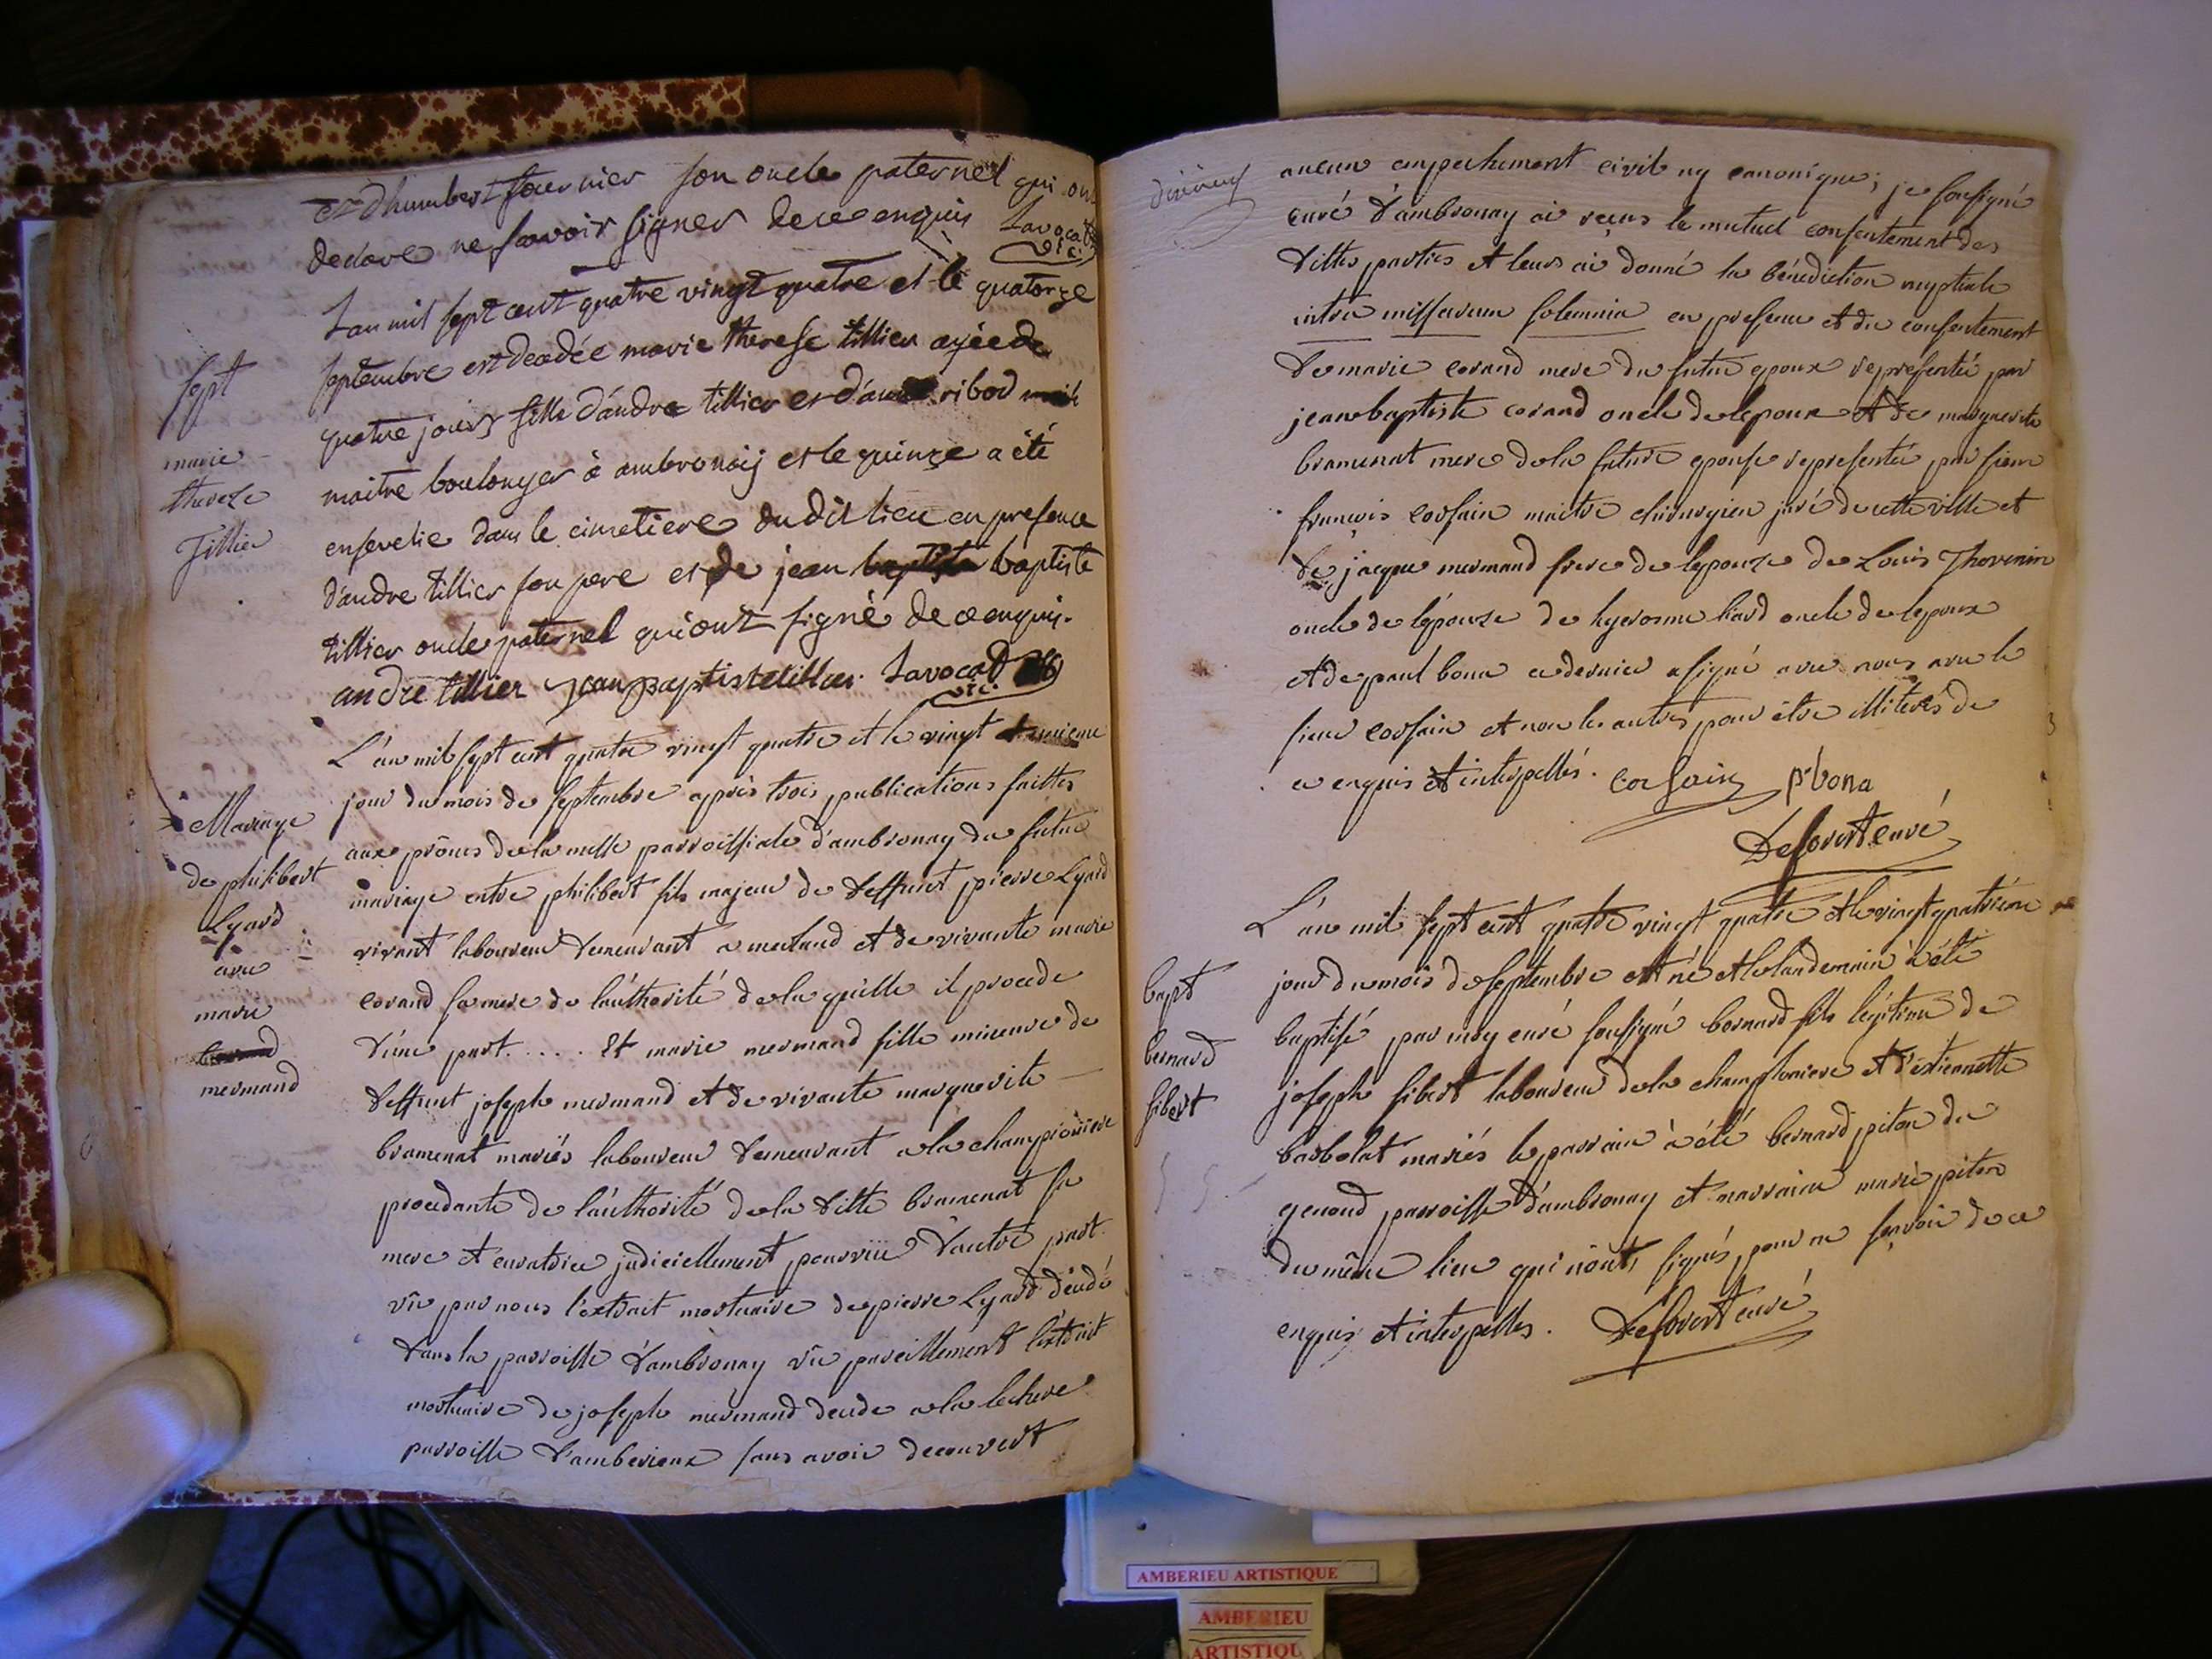 et d'humbert fournier son oncle paternel qui ont
declare ne savoir signer de ce enquis Lavocat
vic:
L'an mil sept cent quatre vingt quatre et le quatorze
septembre est decedée marie therese tillier agée de
quatre jours fille d'andre tillier et d'anne ribod
maitre boulonger à ambronaij et le quinze a été
ensevelie dans le cimetiere du dit lieu en presence
d'andre tillier son pere et de jean baptiste baptiste
tillier oncle paternel qui ont signé de ce enquis.
andre tillier jean baptiste tillier. Lavocat
vic:
sept
marie
thereze
Tillier
L'an mil sept cent quatre vingt quatre et le vingt
jour du mois de septembre après trois publications faittes
aux prônes de la messe parroissiale d'ambronay du futur
mariage entre philibert fils majeur de deffunt pierre Lyard
vivant laboureur demeurant a merland et de vivante marie
corand sa mere de l'authorité de laquelle il procede
d'une part..... Et marie mermand fille mineure de
deffunt joseph mermand et de vivante marguerite
bramenat mariés laboureur demeurant a la championiere
procedante de l'authorité de la ditte bramenat sa
mere et curatrice judiciellement pourvüe d'autre part.
vû par nous l'extrait mortuaire de pierre Lyard décédé
dans la parroisse d'ambronay vû pareillement l'extrait
mortuaire de joseph mermand decede a la lechere
parroisse d'amberieux sans avoir decouvert
Mariage
de philibert
Lyard
avec
marie
mermand
aucun empechement civil ny canonique; je soussigné
curé d'ambronay ai reçus le mutuel consentement des
dittes parties et leurs ai donné la bénédiction nuptiale
intra missarum solemnia en presence et du consentement
de marie corand mere du futur epoux representée par
jean baptiste corand oncle de lepoux et de marguerite
bramenat mere de la future epouse representée par sieur
françois corsain maitre chirurgien juré de cette ville et
de jacque mermand frere de lepouze de Louis Thovenin
oncle de lépouze de hyerosme liard oncle de lepoux
et de paul bona ce dernier a signé avec nous avec le
sieur corsain et non les autres pour être illiterés de
ce enquis et interpellés. corsain p bona
Deforest curé
L'an mil sept cent quatre vingt quatre et le vingt quatrieme
jour du mois de septembre est né et le landemain à été
baptisé par moy curé soussigné bernard fils légitime de
joseph sibert laboureur de la championiere et d'étiennette
barbolat mariés le parrain à été bernard piton de
genoud parroisse d'ambronay et marraine marie piton
du même lieu qui n'ont signés pour ne sçavoir de ce
enquis et interpellés. Deforest curé
bapt
bernard
sibert
AMBERIEU ARTISTIQUE
AMBERIEU
ARTISTIQU